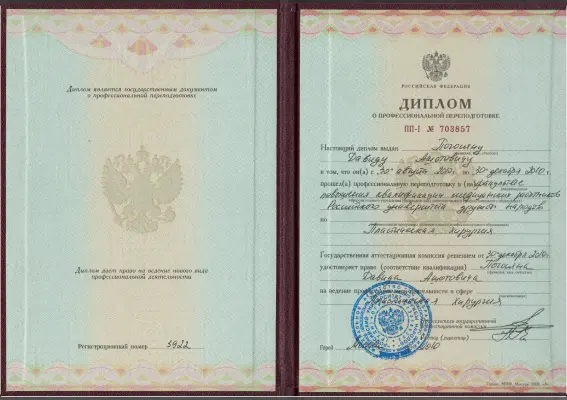 Диплом является государственным документом
о профессиональной переподготовке
Диплом дает право на ведение нового вида
профессиональной деятельности
Регистрационный номер 5922
РОССИЙСКАЯ ФЕДЕРАЦИЯ
ДИПЛОМ
О ПРОФЕССИОНАЛЬНОЙ ПЕРЕПОДГОТОВКЕ
ПП-I № 703857
Настоящий диплом выдан Погосяну
Давиду Ашотовичу
в том, что он(а) с 30 августа по 30 декабря 2010 г.
прошел(а) профессиональную переподготовку в (на) факультете
повышения квалификации медицинских работников
Российского университета дружбы народов
по
Пластическая хирургия
Государственная аттестационная комиссия решением от 30 декабря 2010 г.
удостоверяет право (соответствие квалификации) Погосяна
Давида Ашотовича
на ведение профессиональной деятельности в сфере
Пластическая хирургия
Председатель государственной
аттестационной комиссии
Ректор (директор)
Город Москва 2010